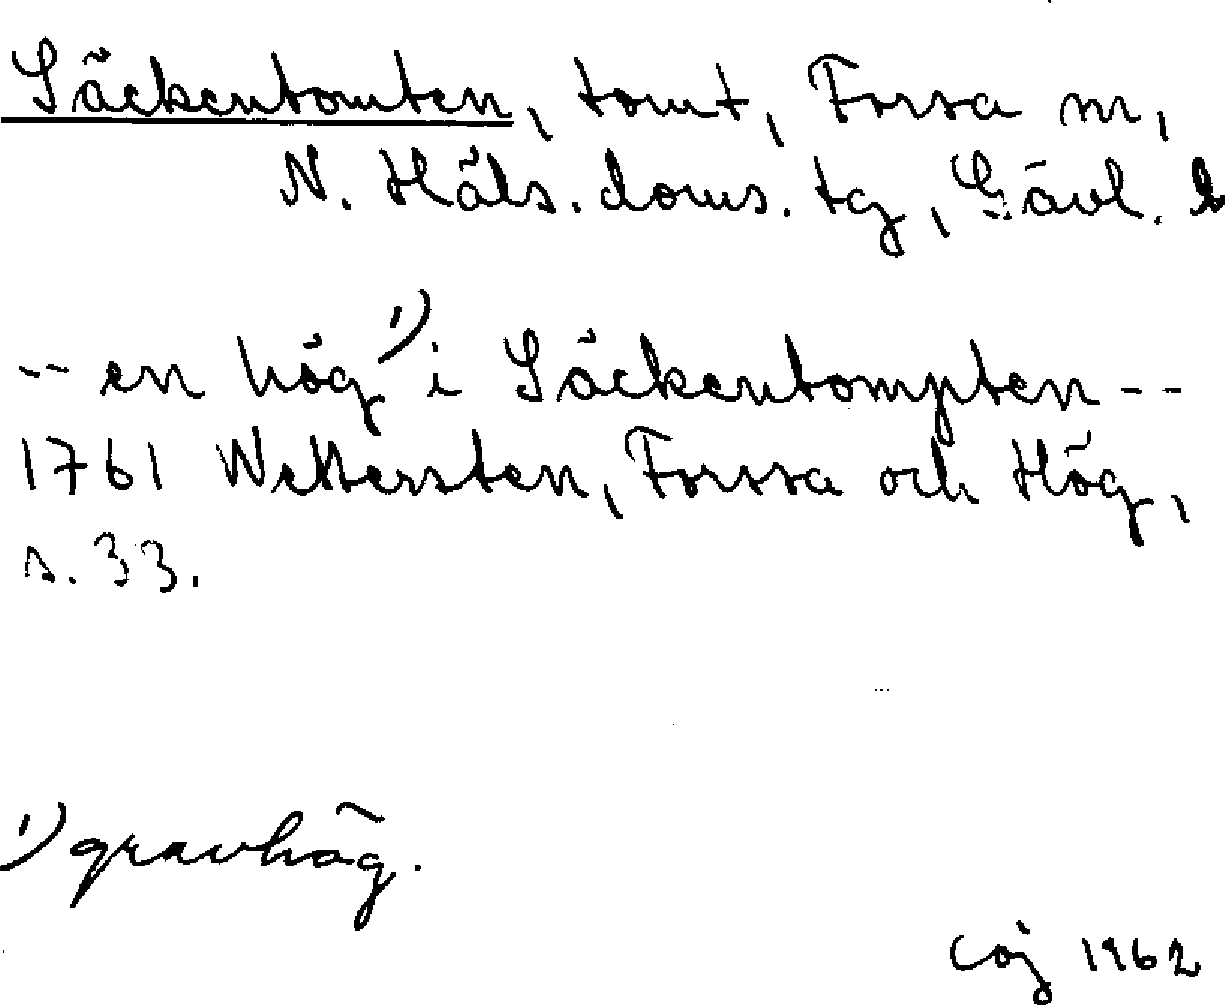 Säckentomten, tomt, Forsa sn,
N. Häls. doms. tg, Gävl. l
-- en hög ¹) i Säckentompten --
1761 Wettersten, Forssa och Hög,
s. 33.
¹) gravhög.
Coj 1962